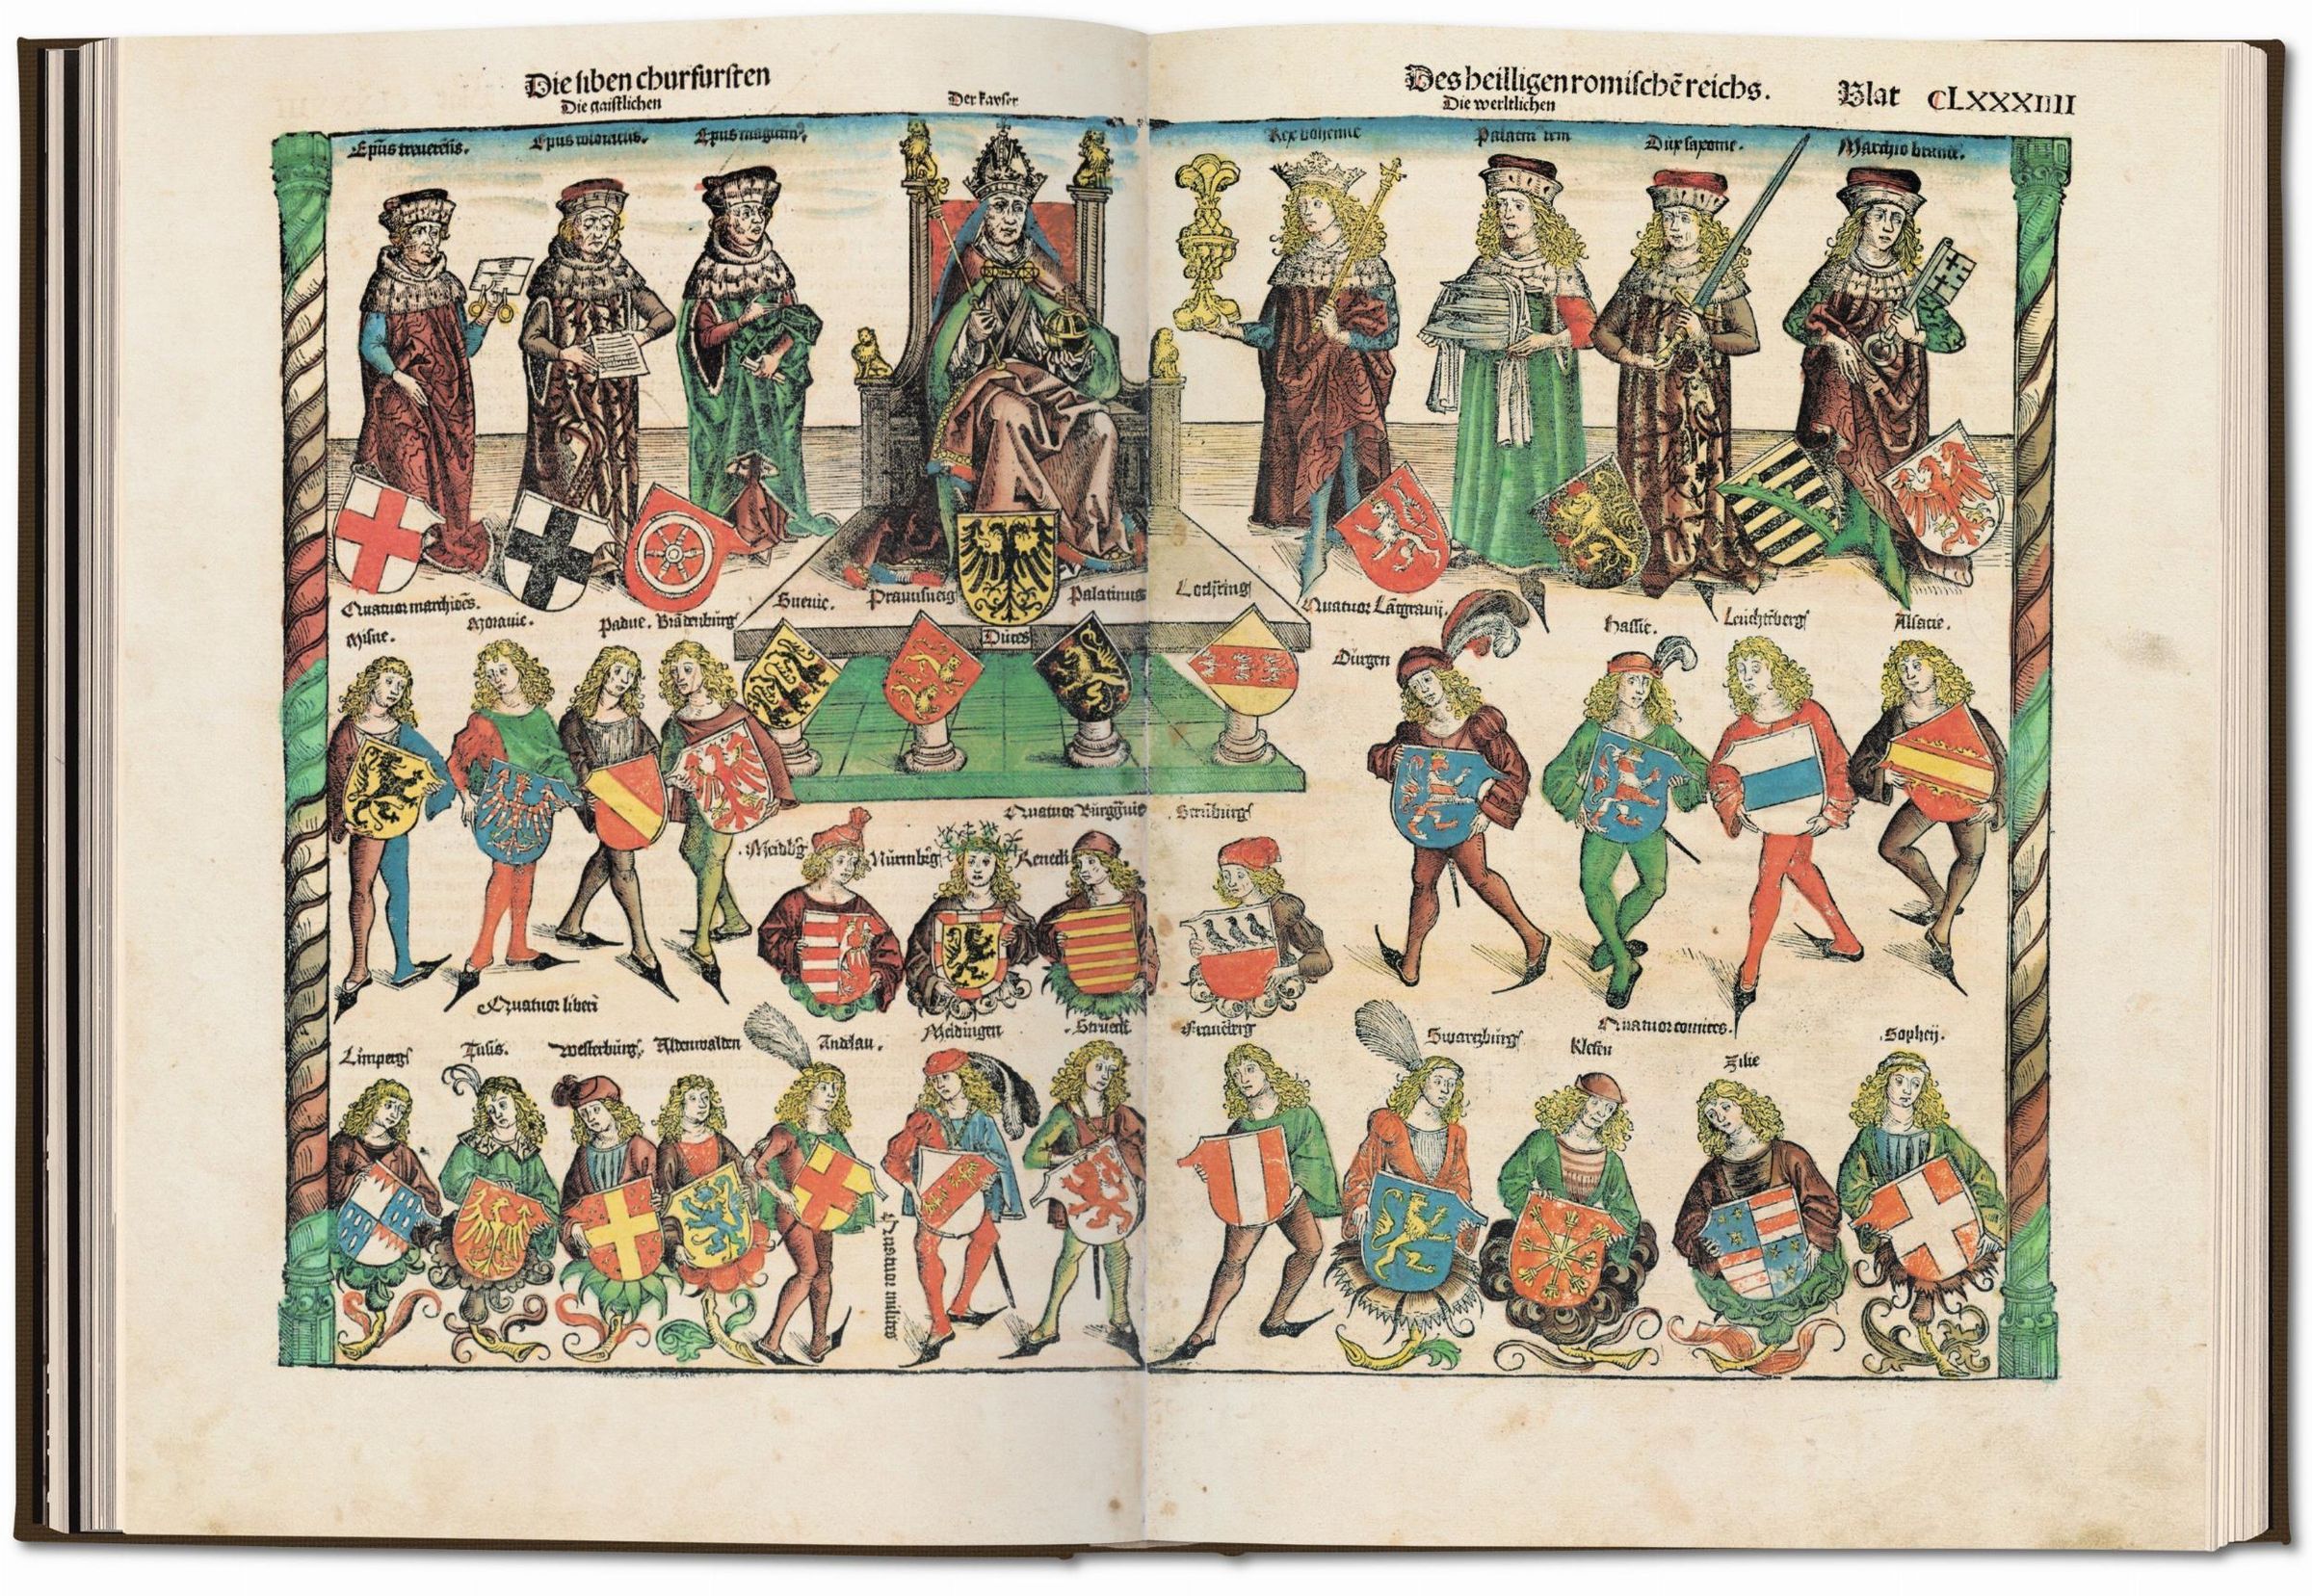 Die siben churfursten
Die gaistlichen
Der kayser
Des heilligen romischē reichs.
Die werltlichen
Blat CLXXXIIII
Epūs treuerēsis.
Rex bohemie
Dux saxonie.
Quatuor marchiōēs.
Misne.
Morauie.
Padue. Brādenburg
Sueuie.
Praunsueig
Palatinus
Lothring
Duces
Quatuor Lātgrauij.
Düringen
Hassie.
Leuchtēberg
Alsacie.
Quatuor Burggrauie
Meidbg
Nürmbg
Reneck
Strūburg
Quatuor liberi
Limperg
Tusis.
Westerburg
Aldenwalden
Andelau.
Meldingen
Strueck
Fraueberg
Quatuor milites
Quatuor comites.
Swartzburg
Klefen
Zilie
Sophey.